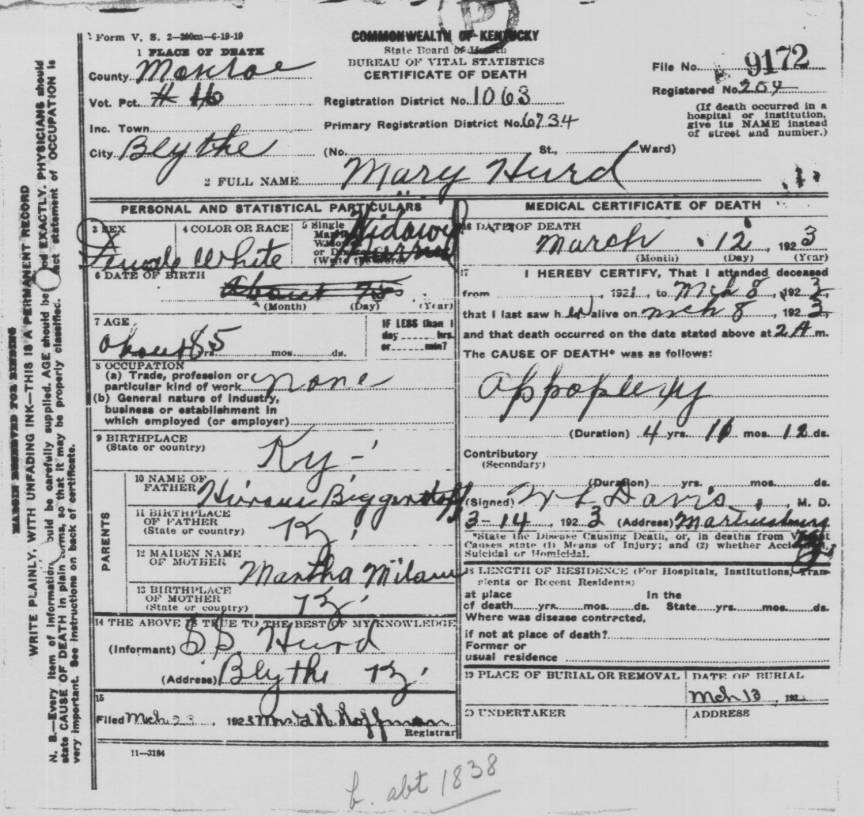 Form V. S. 2—200m—6-19-19
COMMONWEALTH OF KENTUCKY
State Board of Health
BUREAU OF VITAL STATISTICS
CERTIFICATE OF DEATH
1 PLACE OF DEATH
County Monroe
Vot. Pct. # 16
Inc. Town
City Blythe
Registration District No. 1063
Primary Registration District No. 6734
(No. St., Ward)
File No. 9172
Registered No. 204
(If death occurred in a
hospital or institution,
give its NAME instead
of street and number.)
2 FULL NAME Mary Hurd
PERSONAL AND STATISTICAL PARTICULARS
3 SEX
Female
4 COLOR OR RACE
White
5 Single
Widowed
6 DATE OF BIRTH
About 75
(Month) (Day) (Year)
7 AGE
about 85 yrs. mos. ds.
IF LESS than 1
day hrs.
or min?
8 OCCUPATION
(a) Trade, profession or
particular kind of work none
(b) General nature of Industry,
business or establishment in
which employed (or employer)
9 BIRTHPLACE
(State or country)
Ky
PARENTS
10 NAME OF
FATHER Biggerstaff
11 BIRTHPLACE
OF FATHER
(State or country) Ky
12 MAIDEN NAME
OF MOTHER Martha Milam
13 BIRTHPLACE
OF MOTHER
(State or country) Ky
14 THE ABOVE IS TRUE TO THE BEST OF MY KNOWLEDGE
(Informant) Hurd
(Address) Blythe Ky
15
Filed Mch 23, 1923 Mrs. Hoffman
Registrar
11—3184
MEDICAL CERTIFICATE OF DEATH
16 DATE OF DEATH
March 12, 1923
(Month) (Day) (Year)
17 I HEREBY CERTIFY, That I attended deceased
from , 1921, to Mch 8, 1923
that I last saw her alive on mch 8, 1923
and that death occurred on the date stated above at 2 A m.
The CAUSE OF DEATH* was as follows:
Appoplexy
(Duration) 4 yrs. 10 mos. 12 ds.
Contributory
(Secondary)
(Duration) yrs. mos. ds.
(Signed) W L Davis, M. D.
3-14, 1923 (Address) Martinsburg
Ky
*State the Disease Causing Death, or, in deaths from Violent
Causes state (1) Means of Injury; and (2) whether Accidental,
Suicidal or Homicidal.
18 LENGTH OF RESIDENCE (For Hospitals, Institutions, Transients
or Recent Residents)
at place In the
of death yrs. mos. ds. State yrs. mos. ds.
Where was disease contracted,
if not at place of death?
Former or
usual residence
19 PLACE OF BURIAL OR REMOVAL
DATE OF BURIAL
Mch 13, 192
20 UNDERTAKER
ADDRESS
MARGIN RESERVED FOR BINDING
WRITE PLAINLY, WITH UNFADING INK—THIS IS A PERMANENT RECORD
N. B.—Every item of information should be carefully supplied. AGE should be stated EXACTLY. PHYSICIANS should
state CAUSE OF DEATH in plain terms, so that it may be properly classified. Exact statement of OCCUPATION is
very important. See instructions on back of certificate.
b. abt 1838